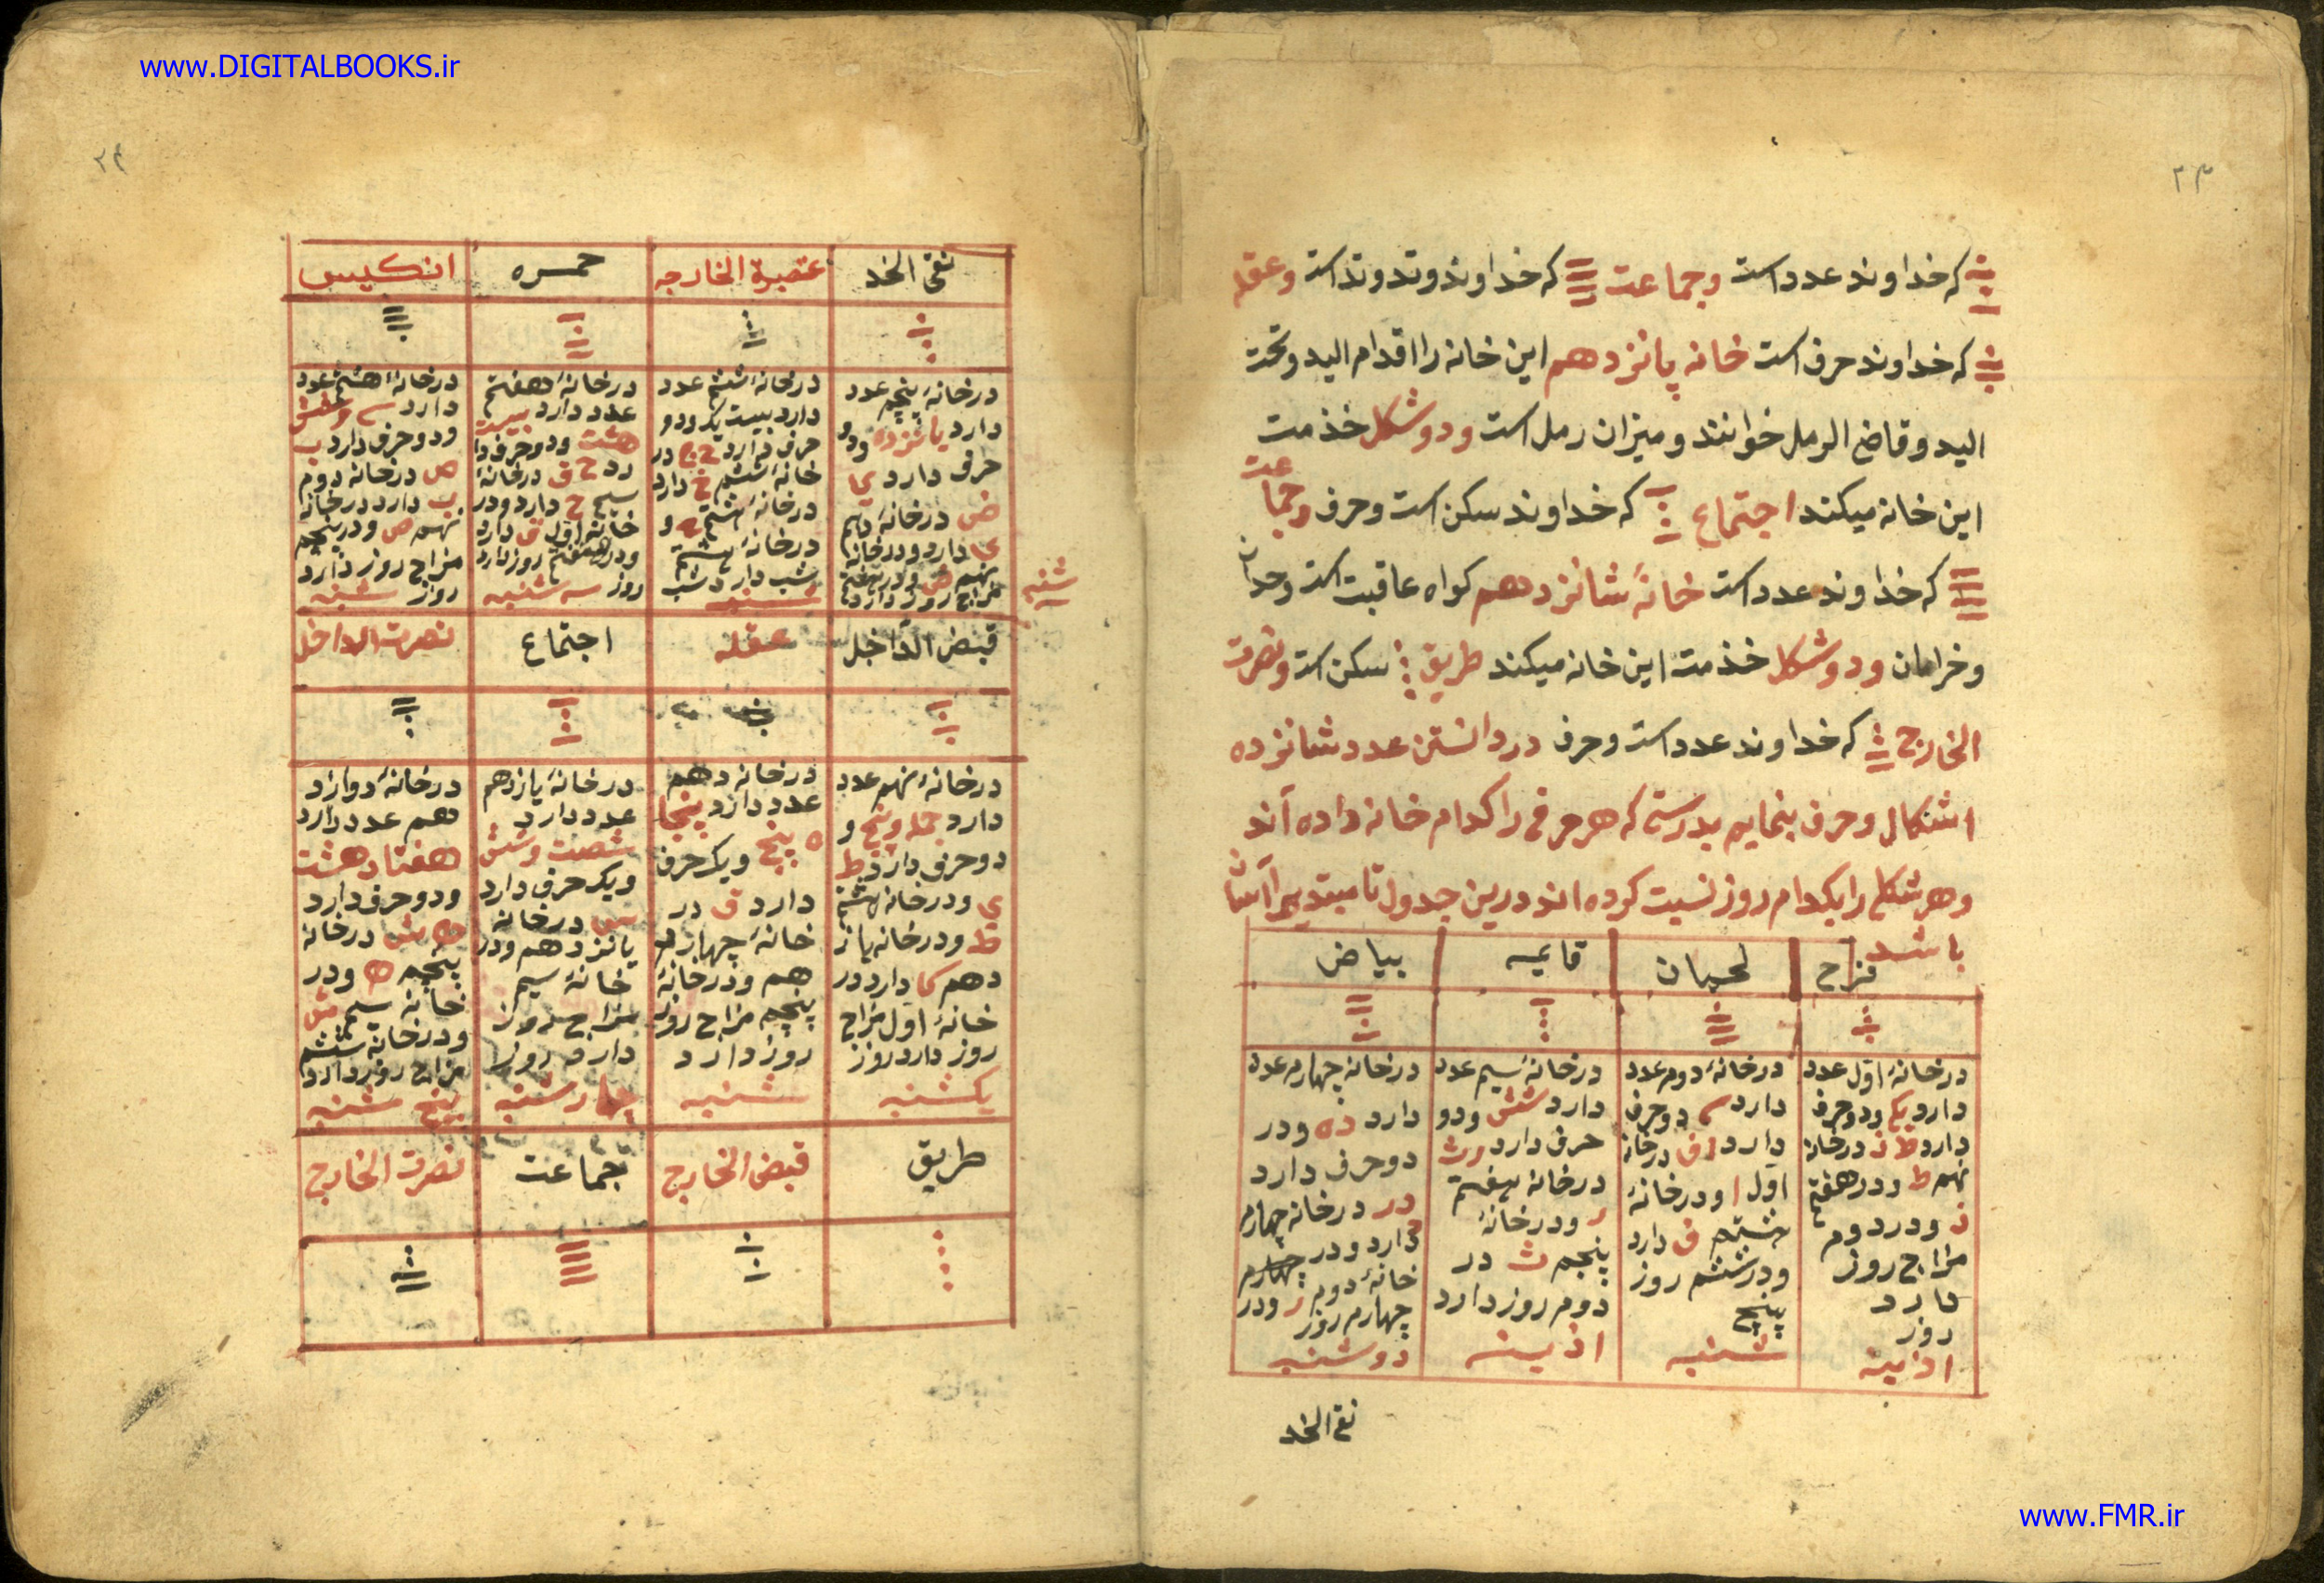 www.DIGITALBOOKS.ir
۲۳
که خداوند عدد است وجماعت که خداوند وتد وتد است وعقله
که خداوند حرف است خانه پانزدهم این خانه را اقدام الید وتحت
الید و قاضی الرمل خوانند و میزان رمل است ودوشکل خذمت
این خانه میکند اجتماع که خداوند سکن است وحرف وجماعت
که خداوند عدد است خانهٔ شانزدهم کواه عاقبت است
ودوشکل خذمت این خانه میکند طریق سکن است ونصرت
الخارج که خداوند عدد است وحرف در دانستن عدد شانزده
اشکال وحرف بنمایم بدرستی که هر حرفی را کدام خانه داده آند
وهر شکلی رابکدام روز نسبت کرده اند درین جدول تا مبتدی را آسان
باشد
فرح
لحیان
قایمه
بیاض
درخانهٔ اول عدد
دارد یک ودوحرف
دارد ط ذ درخانه
نهم ط ودرهفتم
ذ ودردوم
مزاج روز
دارد
روز
اذینه
درخانهٔ دوم عدد
دارد دوحرف
دارد درخانه
اول ا ودرخانهٔ
ف دارد
ودرششم روز
پنج
شنبه
درخانهٔ سیم عدد
دارد شش ودو
حرف دارد رث
درخانه هفتم
ر ودرخانهٔ
پنجم ث در
دوم روز دارد
اذینه
درخانه چهارم عدد
دارد ده ودر
دوحرف دارد
در درخانه چهارم
دارد ودر چهارم
خانهٔ دوم ر ودر
چهارم روز
دوشنبه
نقی الخد
۲۴
نقی الخد
عتبة الخارجه
حمره
انکیس
درخانهٔ پنجم عدد
دارد پانزده ودو
حرف دارد
ض درخانهٔ دهم
ی دارد ودرخانه
نهم ض
مزاج روز دارد
شنبه
درخانهٔ ششم عدد
دارد بیست یک ودو
حرف دارد در
خانهٔ ششم خ دارد
درخانهٔ
درخانهٔ
شب دارد شب
شنبه
درخانهٔ هفتم
عدد دارد بیست
هشت ودوحرف دا
رد ح ق درخانهٔ
سیم ح دارد ودر
خانه اول ق دارد
ودرهفتم روز دارد
روز سه شنبه
درخانهٔ هشتم عدد
دارد سی وشش
ودوحرف دارد ب
ص درخانه دوم
ب دارد درخانه
نهم ص ودرپنجم
مزاج روز دارد
روز شنبه
قبض الداخل
عقله
اجتماع
نصرت الداخل
درخانهٔ نهم عدد
دارد چهل وپنج و
دوحرف دارد ط
ی ودرخانه هشتم
ط ودرخانه یاز
دهم کا دارد در
خانهٔ اول مزاج
روز دارد روز
یکشنبه
درخانه دهم
عدد دارد پنجا
ه پنج ویک حرف
دارد ق در
خانهٔ چهارد
هم ودرخانهٔ
پنجم مزاج روز
روز دارد
شنبه
درخانهٔ یازدهم
عدد دارد
شصت وشش
ویک حرف دارد
س درخانه
پانزدهم ودر
خانهٔ سیم
مزاج روز
دارد روز
چهارشنبه
درخانهٔ دوازد
دهم عدد دارد
هفتاد هشت
ودوحرف دارد
ه ش درخانه
پنجم ه ودر
خانه سیم ش
ودرخانه ششم
مزاج روز دارد
پنج شنبه
طریق
قبض الخارج
جماعت
نصرت الخارج
www.FMR.ir